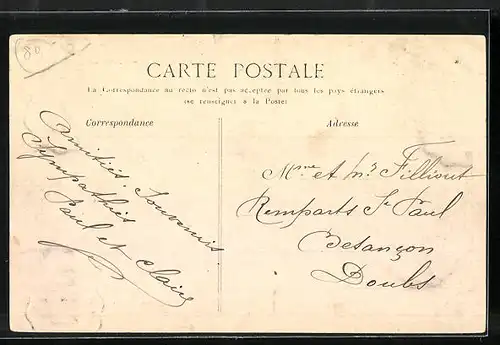 80
CARTE POSTALE
La Correspondance au recto n'est pas acceptée par tous les pays étrangers
(se renseigner à la Poste)
Correspondance
Adresse
Amitiés. Souvenirs.
Sympathies
Paul et Claire
Mme et Mr Filliout
Remparts St Paul
Besançon
Doubs